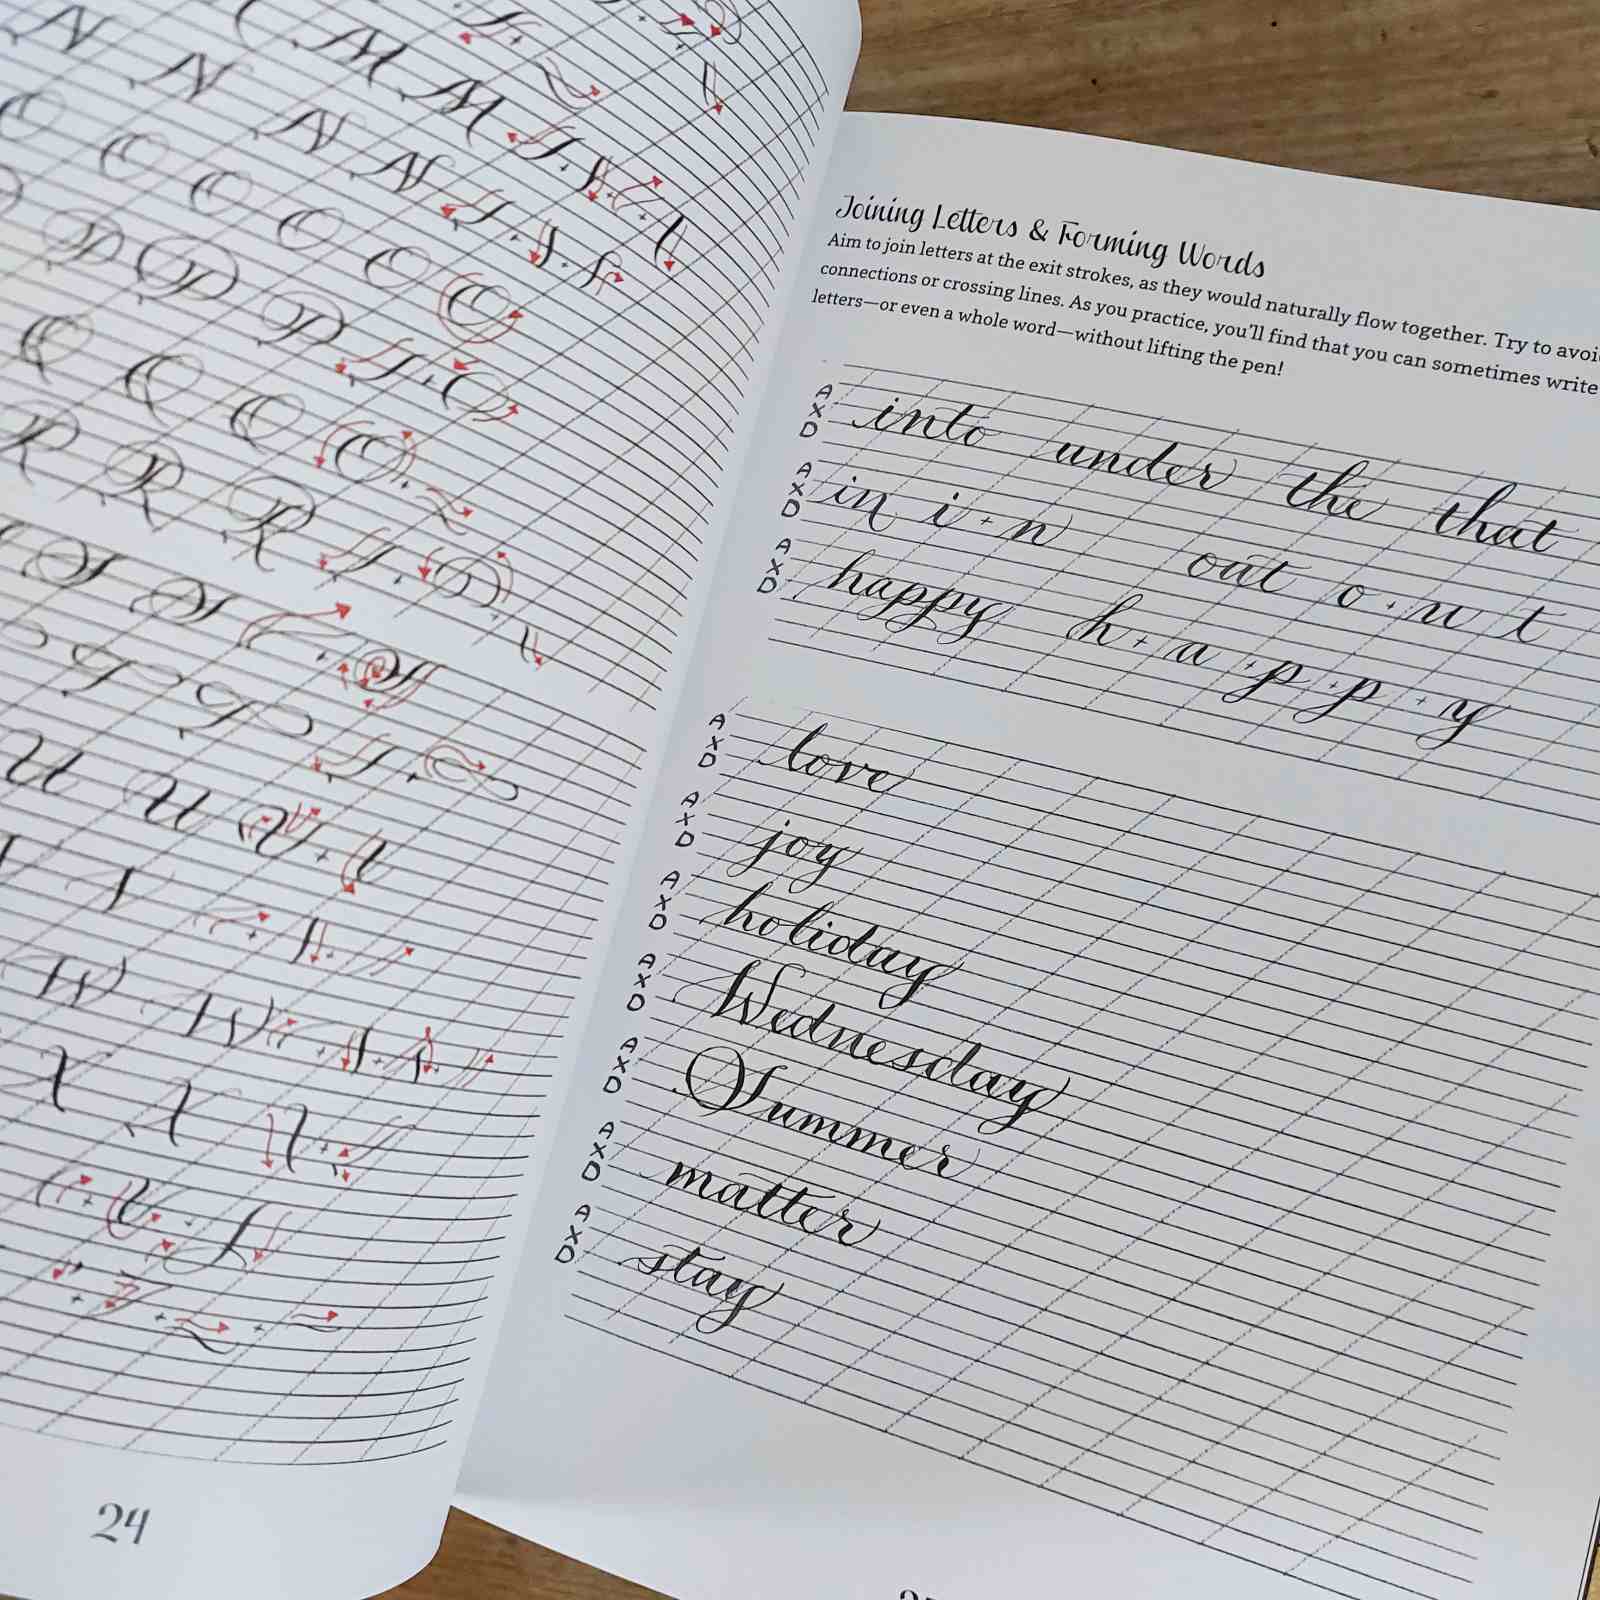 M M
N N N N
O O O O O
P P P
Q Q Q Q
R R R
S S
T T
U U U
W W
X X
24
Joining Letters & Forming Words
Aim to join letters at the exit strokes, as they would naturally flow together. Try to avoi
connections or crossing lines. As you practice, you'll find that you can sometimes write
letters—or even a whole word—without lifting the pen!
A
X into under the that
D
A
X in i + n out o + u t
D
A
X happy h + a + p + p + y
D
A
X love
D
A
X joy
D
A
X holiday
D
A
X Wednesday
D
A
X Summer
D
A
X matter
D
A
X stay
D